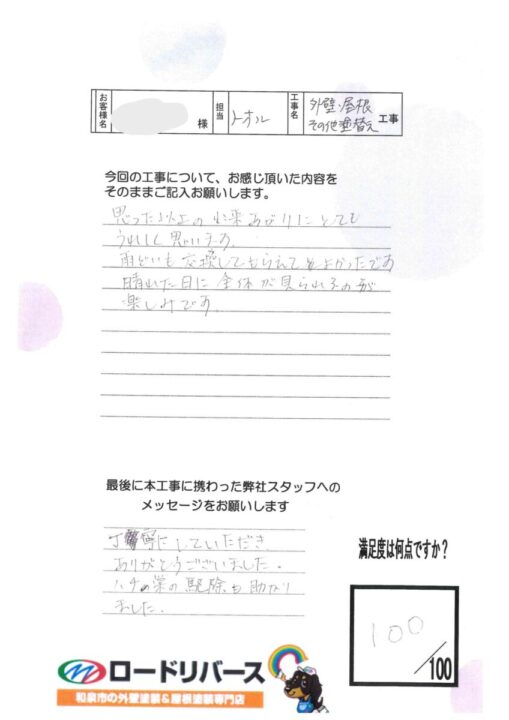 お客様名 様 担当 トオル 工事名 外壁・屋根 その他塗替え 工事
今回の工事について、お感じ頂いた内容を
そのままご記入お願いします。
思った以上の出来あがりにとても
うれしく思います。
雨どいも交換してもらえてとよかったです
晴れた日に全体が見られるのが
楽しみです。
最後に本工事に携わった弊社スタッフへの
メッセージをお願いします
丁寧にしていただき
ありがとうございました。
ハチの巣の駆除も助かり
ました。
満足度は何点ですか?
100
/100
ロードリバース
和泉市の外壁塗装&屋根塗装専門店